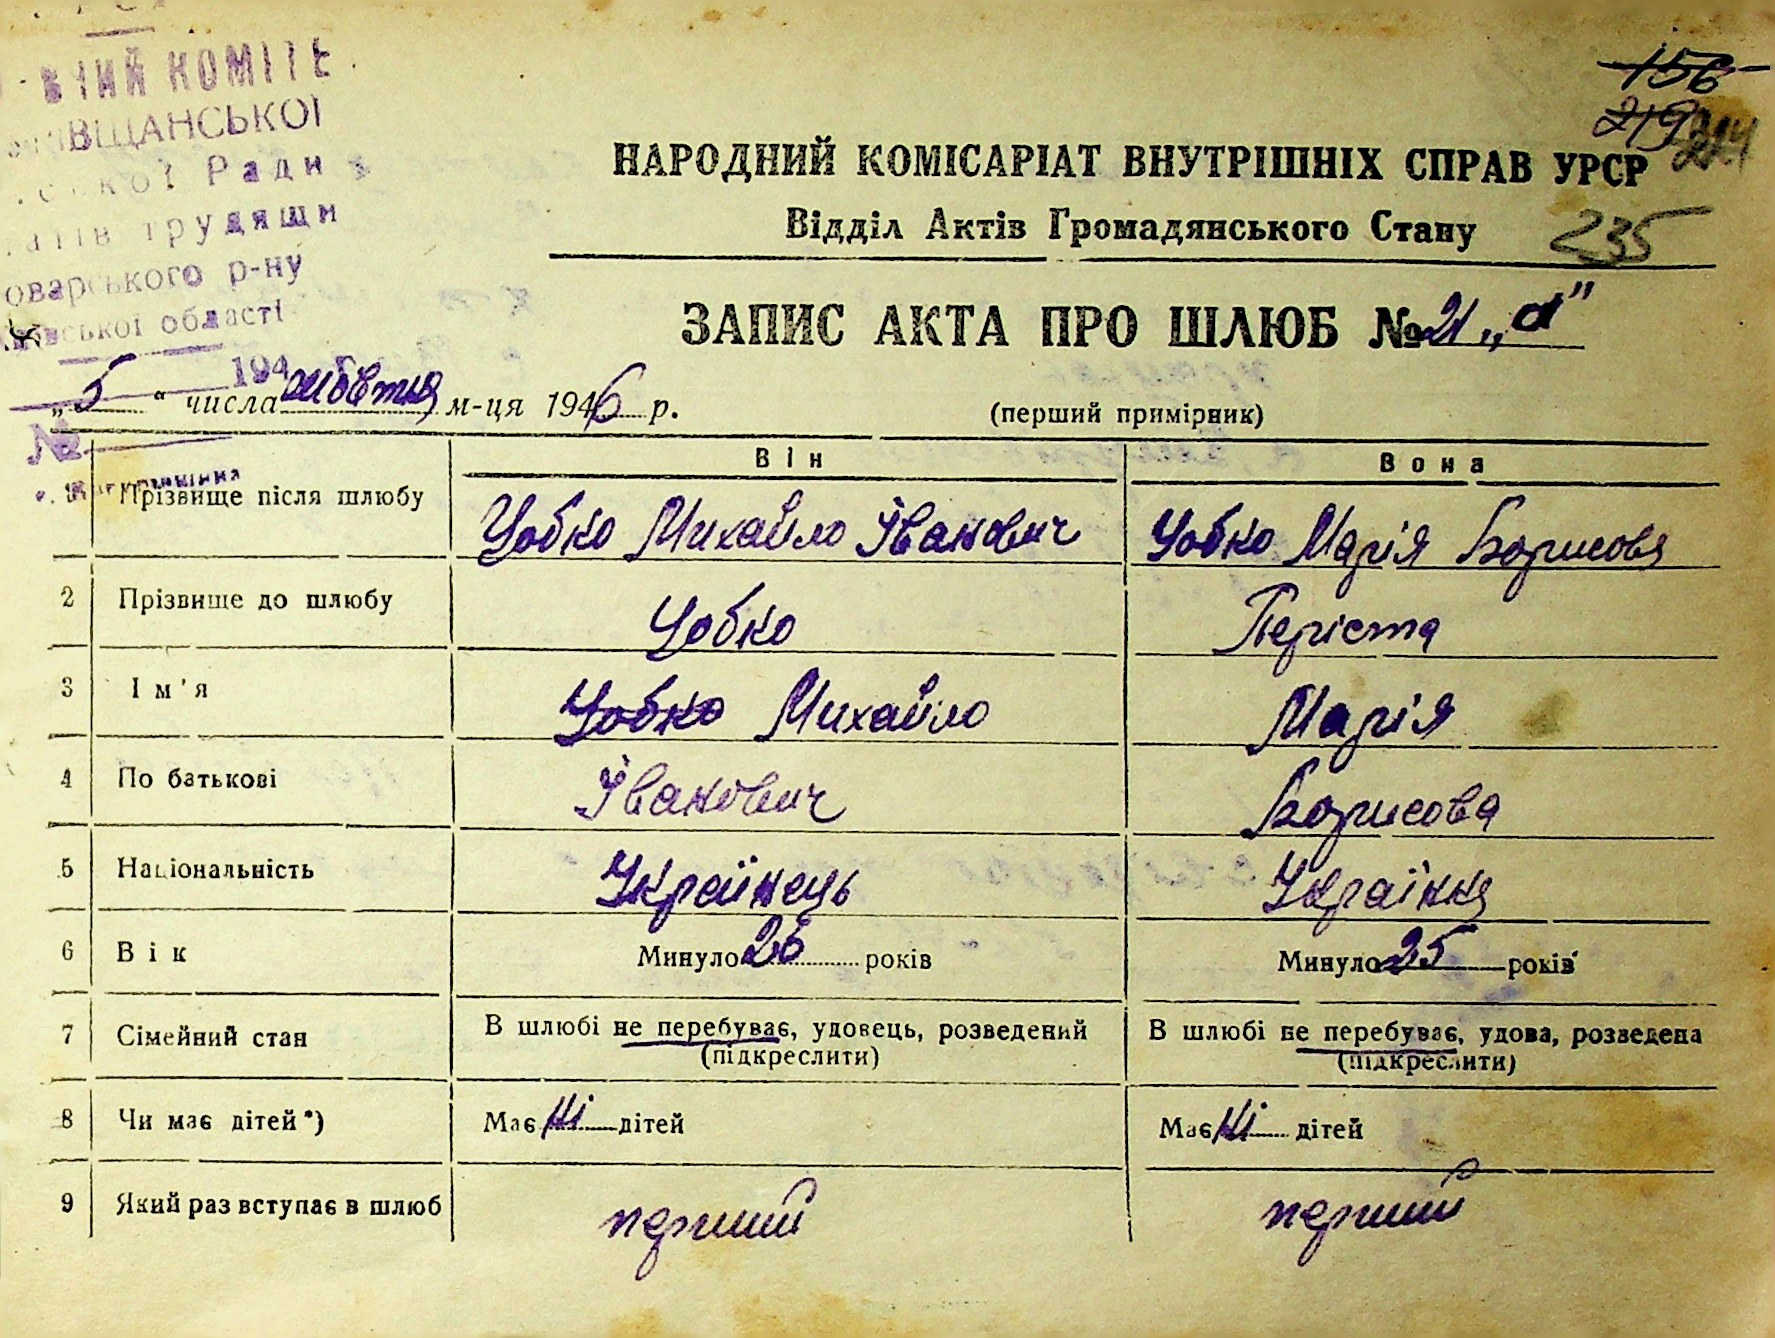 ВІЩАНСЬКОЇ
Ради
трудящи
р-ну
області
194
№
156
219
224
НАРОДНИЙ КОМІСАРІАТ ВНУТРІШНІХ СПРАВ УРСР
Відділ Актів Громадянського Стану
235
ЗАПИС АКТА ПРО ШЛЮБ № 21 „а"
„5" числа жовтня м-ця 1946 р.
(перший примірник)
Він Вона
Прізвище після шлюбу Цобко Михайло Іванович Цобко Марія Борисова
2 Прізвище до шлюбу Цобко Періста
3 Ім'я Цобко Михайло Марія
4 По батькові Іванович Борисова
5 Національність Українець Українка
6 Вік Минуло 26 років Минуло 25 років
7 Сімейний стан В шлюбі не перебуває, удовець, розведений В шлюбі не перебуває, удова, розведена
(підкреслити) (підкреслити)
8 Чи має дітей*) Має Ні дітей Має Ні дітей
9 Який раз вступає в шлюб перший перший